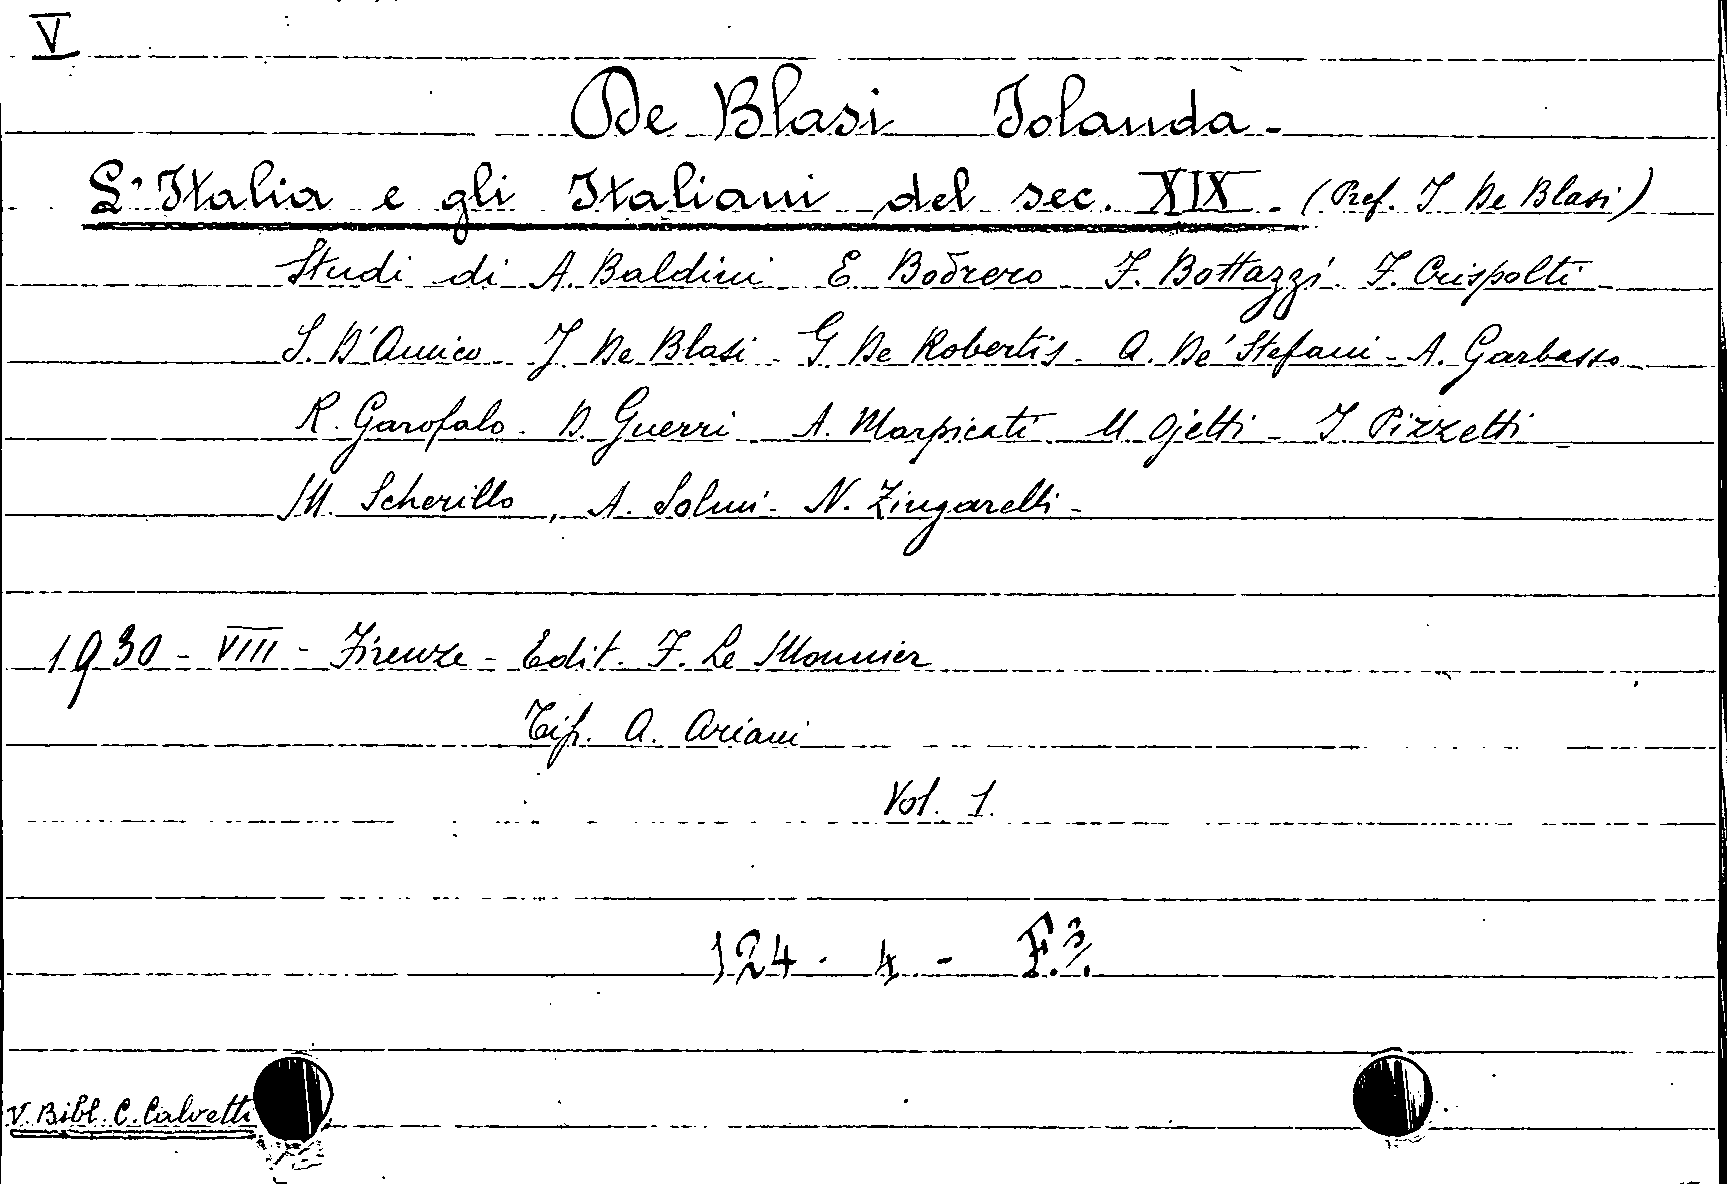 V
De Blasi Jolanda -
L'Italia e gli Italiani del sec. XIX - (Pref. J De Blasi)
Studi di A. Baldini E Bodrero F. Bottazzi F. Crispolti -
S. D'Amico - J De Blasi - G De Robertis - A. De' Stefani - A. Garbasso -
R. Garofalo - D. Guerri - A. Marpicati - U Ojetti - I Pizzetti -
M. Scherillo, A. Solmi - N. Zingarelli -
1930 - VIII - Firenze - Edit. F. Le Monnier
Tip. A. Ariani
Vol. 1.
124 - 4 - F.3.
V. Bibl. C. Calvetti